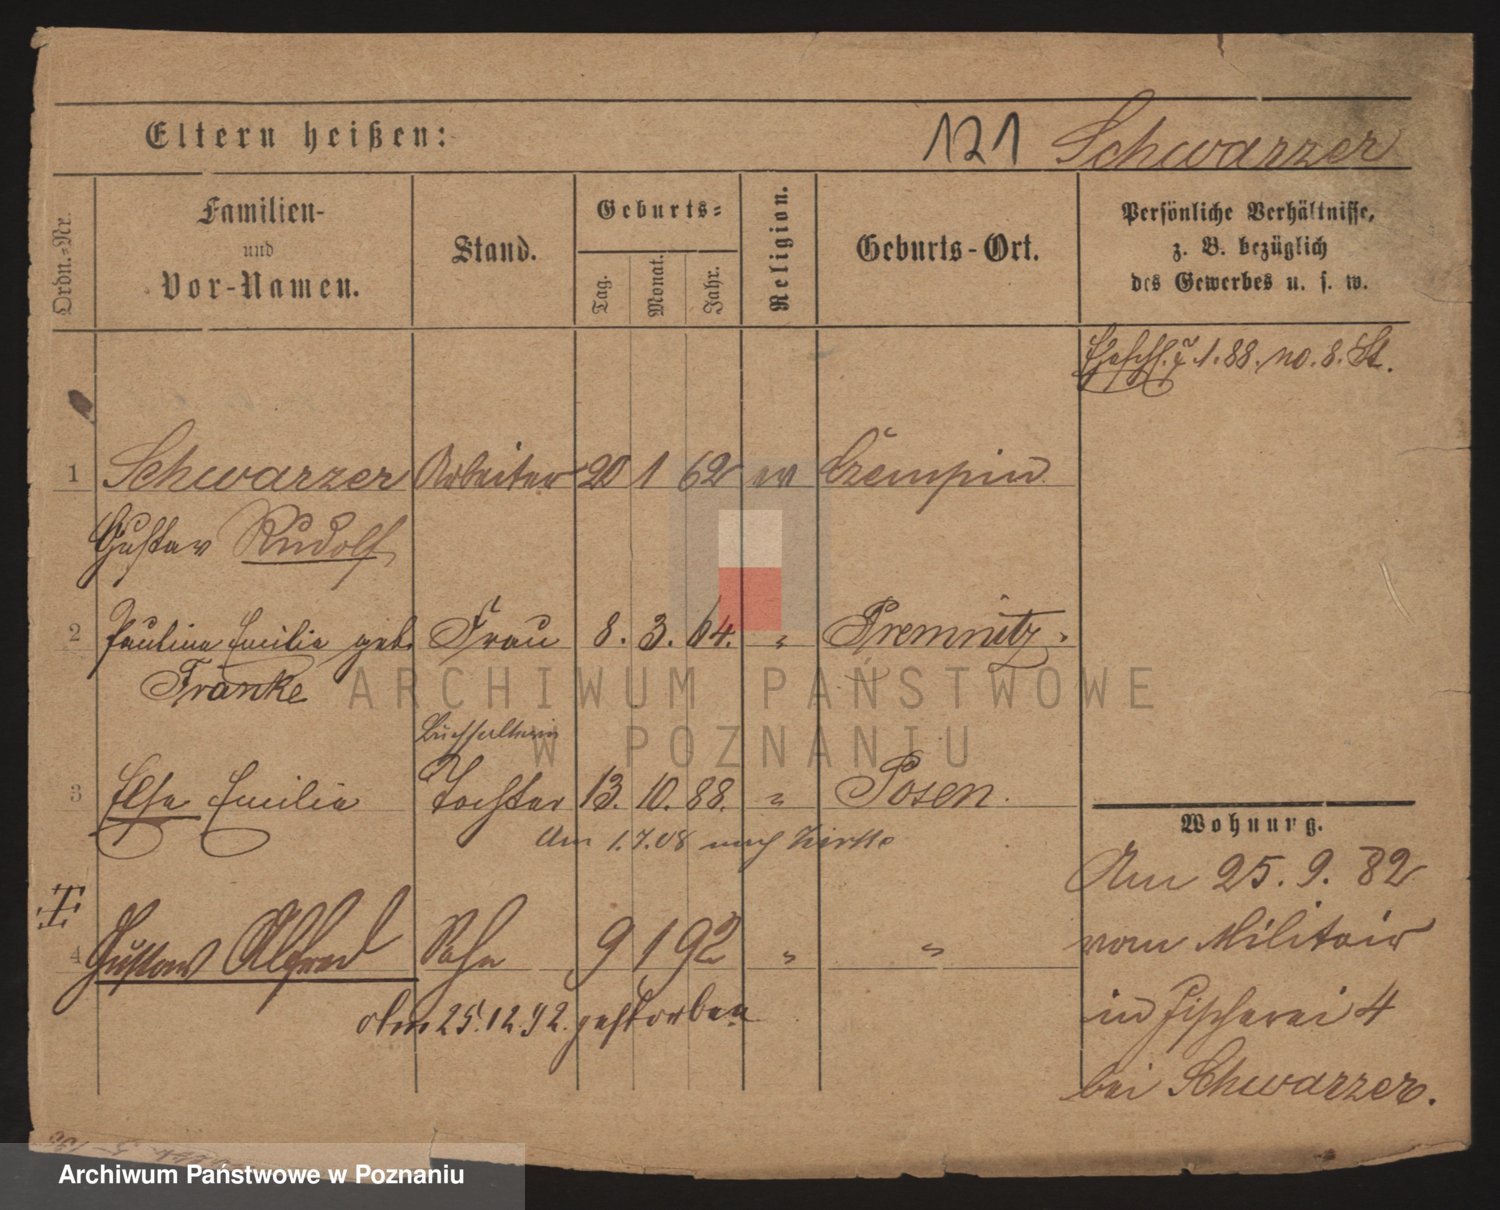 Eltern heißen:
121 Schwarzer
Ordn.-Nr.
Familien-
und
Vor-Namen.
Stand.
Geburts-
Tag.
Monat.
Jahr.
Religion.
Geburts-Ort.
Persönliche Verhältnisse,
z. B. bezüglich
des Gewerbes u. s. w.
1. 88. no. 8. St.
1 Schwarzer Arbeiter 20 1 62 ev Czempin
Gustav Rudolf
2 Pauline Emilie geb. Frau 8. 3. 64. " Premnitz.
Franke
Buchhalterin
3 Else Emilie Tochter 13. 10. 88. " Posen.
Am 1.7.08 nach Zirke
4 Gustav Alfred Sohn 9 1 92 " "
Am 25.12.92. gestorben
Wohnung.
Am 25. 9. 82
vom Militair
in Fischerei 4
bei Schwarzer.
ARCHIWUM PAŃSTWOWE
W POZNANIU
Archiwum Państwowe w Poznaniu